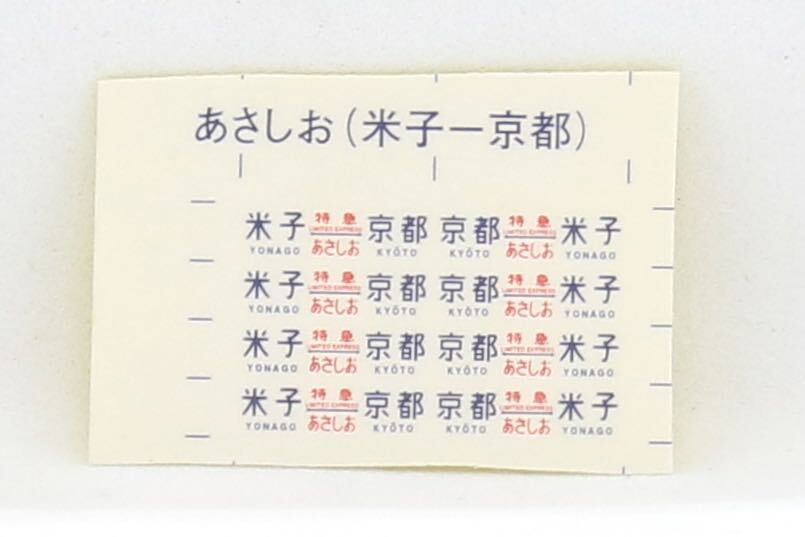 あさしお(米子ー京都)
米子 特急 京都 京都 特急 米子
LIMITED EXPRESS LIMITED EXPRESS
YONAGO あさしお KYŌTO KYŌTO あさしお YONAGO
米子 特急 京都 京都 特急 米子
LIMITED EXPRESS LIMITED EXPRESS
YONAGO あさしお KYŌTO KYŌTO あさしお YONAGO
米子 特急 京都 京都 特急 米子
LIMITED EXPRESS LIMITED EXPRESS
YONAGO あさしお KYŌTO KYŌTO あさしお YONAGO
米子 特急 京都 京都 特急 米子
LIMITED EXPRESS LIMITED EXPRESS
YONAGO あさしお KYŌTO KYŌTO あさしお YONAGO